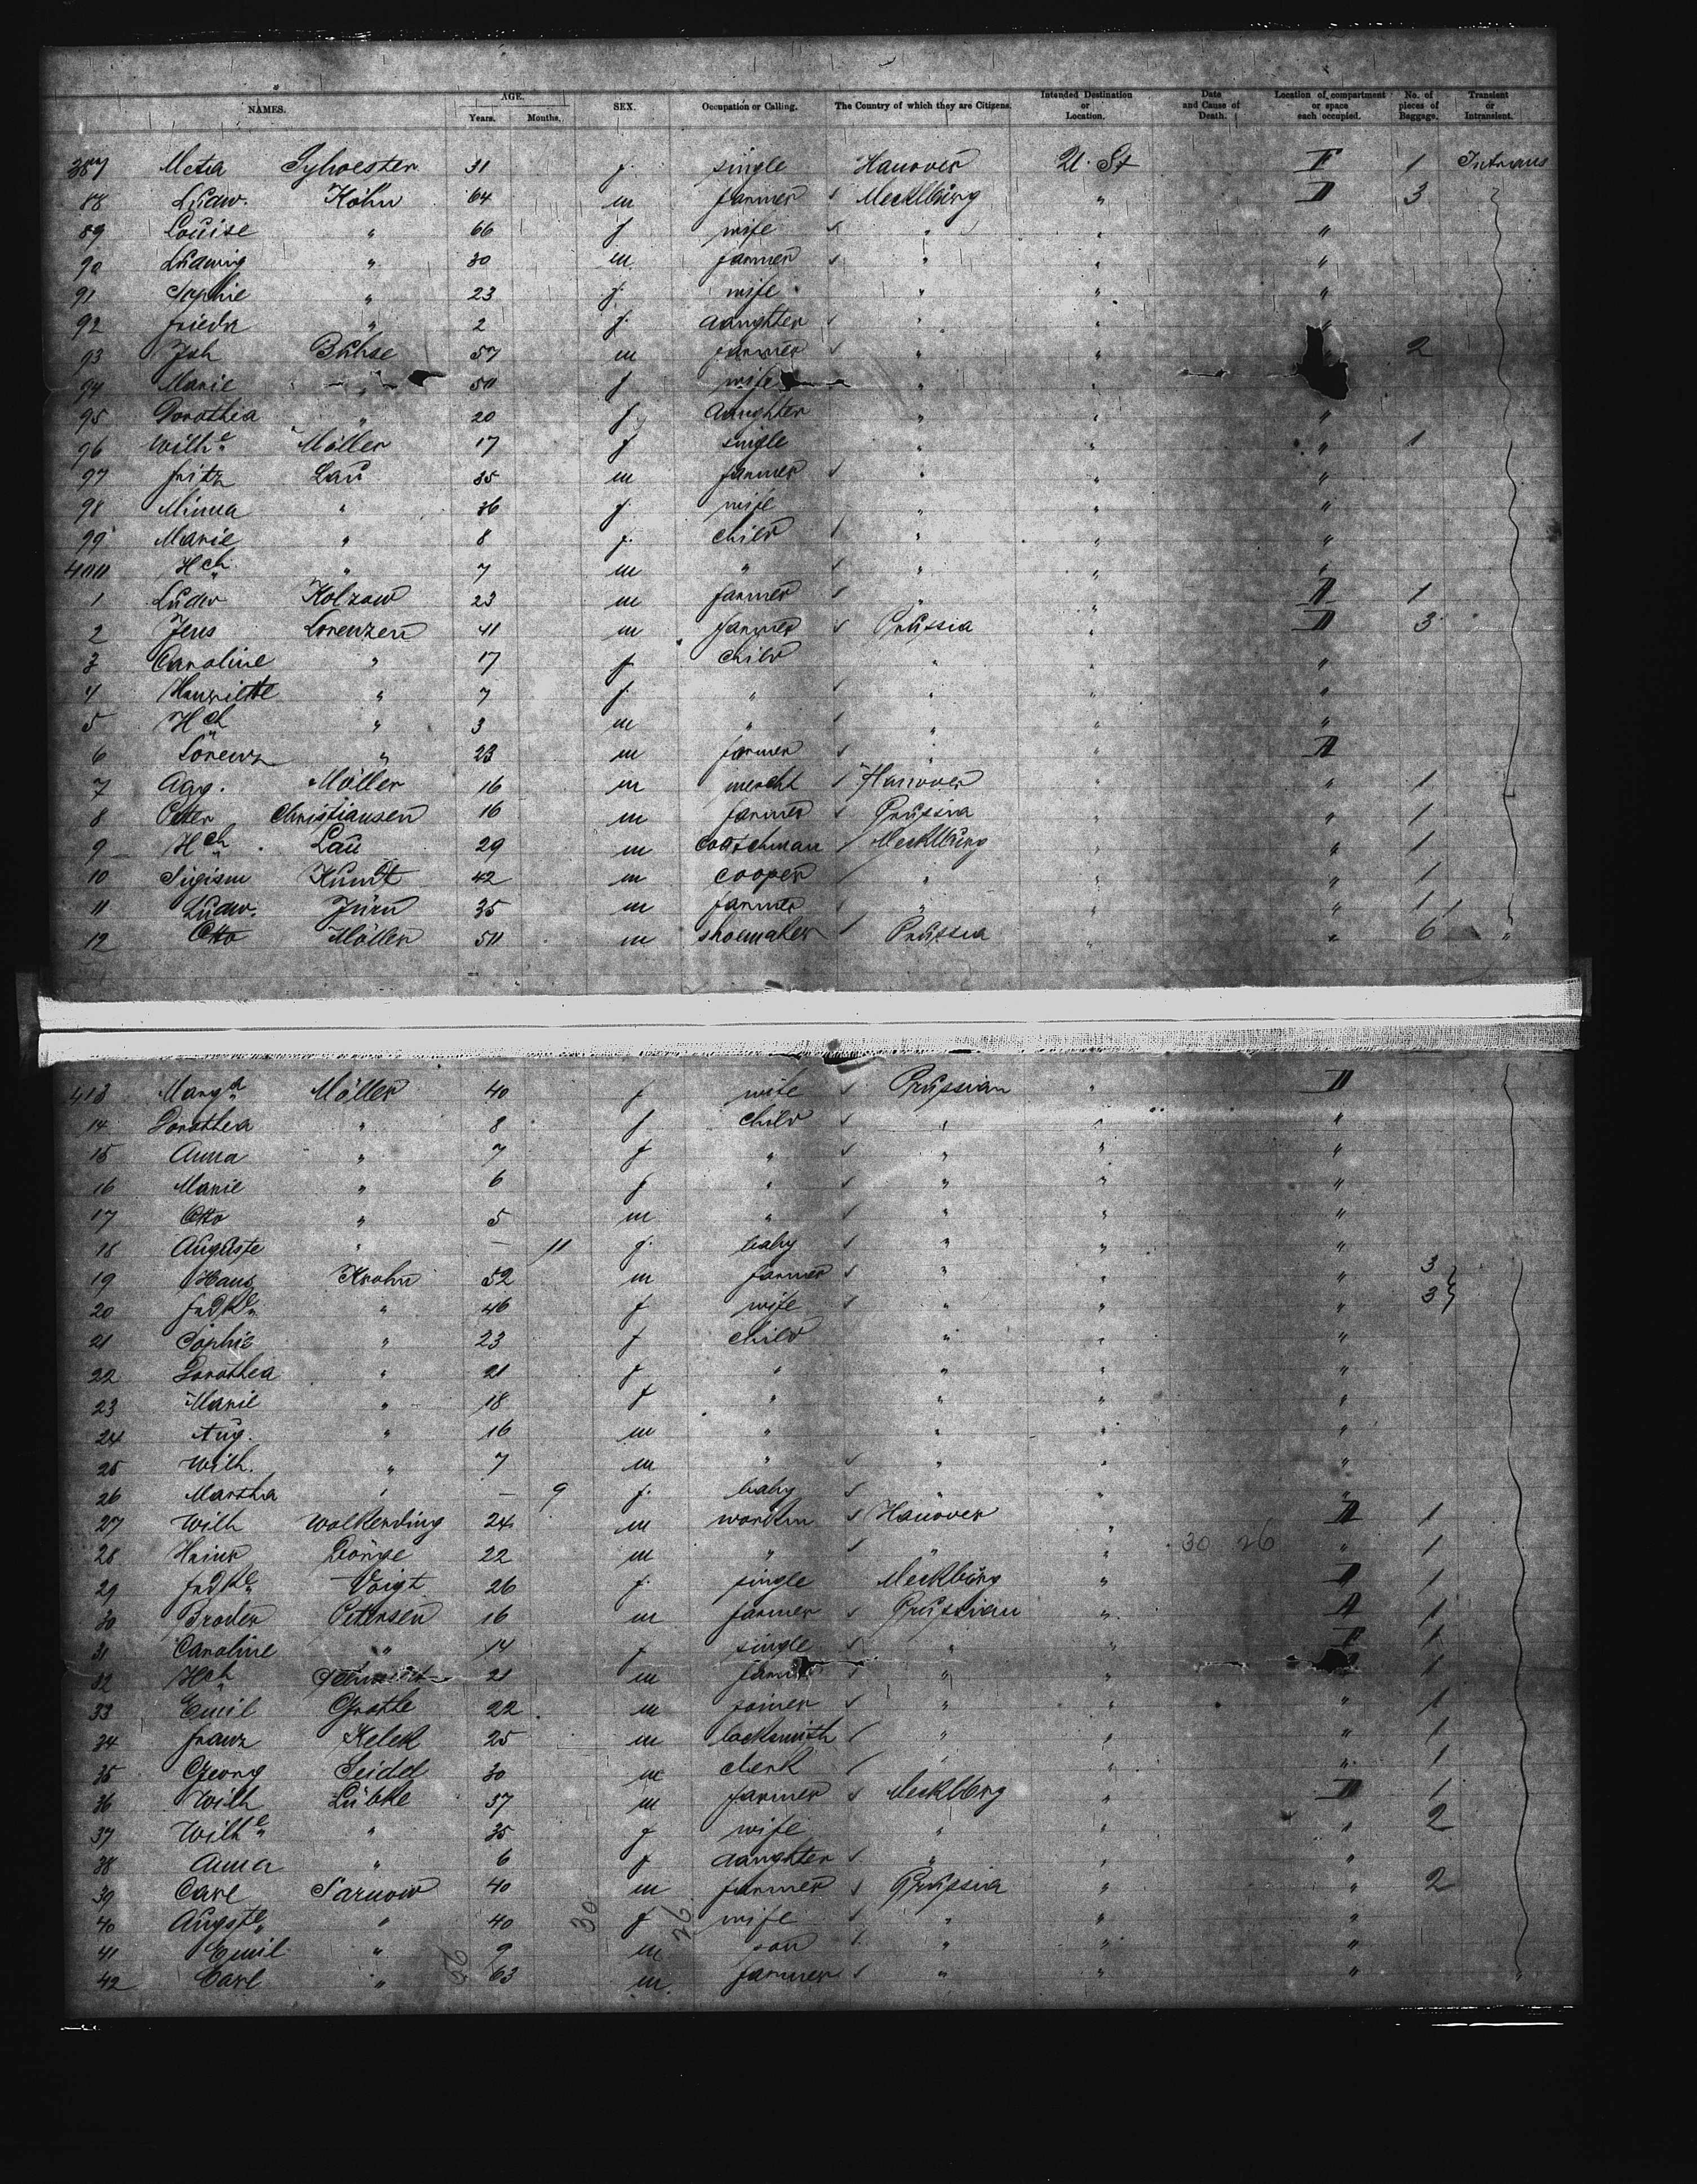 NAMES. AGE. Years. Months. SEX. Occupation or Calling. The Country of which they are Citizens. Intended Destination or Location. Date and Cause of Death. Location of compartment or space each occupied. No. of pieces of Baggage. Transient or Intransient.
387 Meta Sylvester 31 f. single Hanover U. St F 1 Intrans
88 Ludw. Köhn 64 m farmer Mecklburg " D 3
89 Louise " 66 f wife " " "
90 Ludwig " 30 m farmer " " "
91 Sophie " 23 f. wife " " "
92 Friedr " 2 f. daughter " " "
93 Joh Bühse 57 m farmer " " 2
94 Marie " 50 f wife " "
95 Dorothea " 20 f daughter " " "
96 Wilhe Möller 17 f single " " " 1
97 Fritz Lau 35 m farmer " " "
98 Minna " 36 f. wife " " "
99 Marie " 8 f. child " " "
400 Hch " 7 m " " " "
1 Ludw Kolzow 23 m farmer " " A 1
2 Jens Lorenzen 41 m farmer Prussia " D 3
3 Caroline " 17 f child " " "
4 Henriette " 7 f. " " " "
5 Hch " 3 m " " " "
6 Lorenz " 23 m farmer " " A
7 Agg. Möller 16 m mercht Hanover " " 1
8 Peter Christiansen 16 m farmer Prussia " " 1
9 Hch Lau 29 m coatchman Mecklburg " " 1
10 Sigism Kundt 42 m cooper " " " 1
11 Ludw. Jürn 35 m farmer " " " 1
12 Otto Möller 50 m shoemaker Prussia " " 6 "
413 Marga Möller 40 f wife Prussian " D
14 Dorothea " 8 f child " " "
15 Anna " 7 f " " " "
16 Marie " 6 f " " " "
17 Otto " 5 m " " " "
18 Auguste " — 11 f. baby " " "
19 Hans Krohn 52 m farmer " " " 3
20 Fredke " 46 f wife " " " 3
21 Sophie " 23 f child " " "
22 Dorothea " 21 f " " " "
23 Marie " 18 f " " " "
24 Aug. " 16 m " " " "
25 Wilh. " 7 m " " " "
26 Martha " — 9 f. baby " " "
27 Wilh Wolkending 24 m workm Hanover " A 1
28 Heinr 22 m " " " 30 26 " 1
29 Fredke Voigt 26 f. single Mecklburg " D 1
30 Broder Petersen 16 m farmer Prussian " A 1
31 Caroline " 14 f single " " F 1
32 Hch 21 m farmer " " 1
33 Emil Grothe 22 m joiner " " " 1
34 Franz Kelek 25 m locksmith " " " 1
35 Georg Seidel 30 m clerk " " " 1
36 Wilh Lübke 37 m farmer Mecklbrg " D 1
37 Wilhe " 35 f wife " " " 2
38 Anna " 6 f daughter " " "
39 Carl Sarnow 40 m farmer Prussia " " 2
40 Auguste " 40 30 f 26 wife " " "
41 Emil " 9 m son " " "
42 Carl " 63 m farmer " " " "